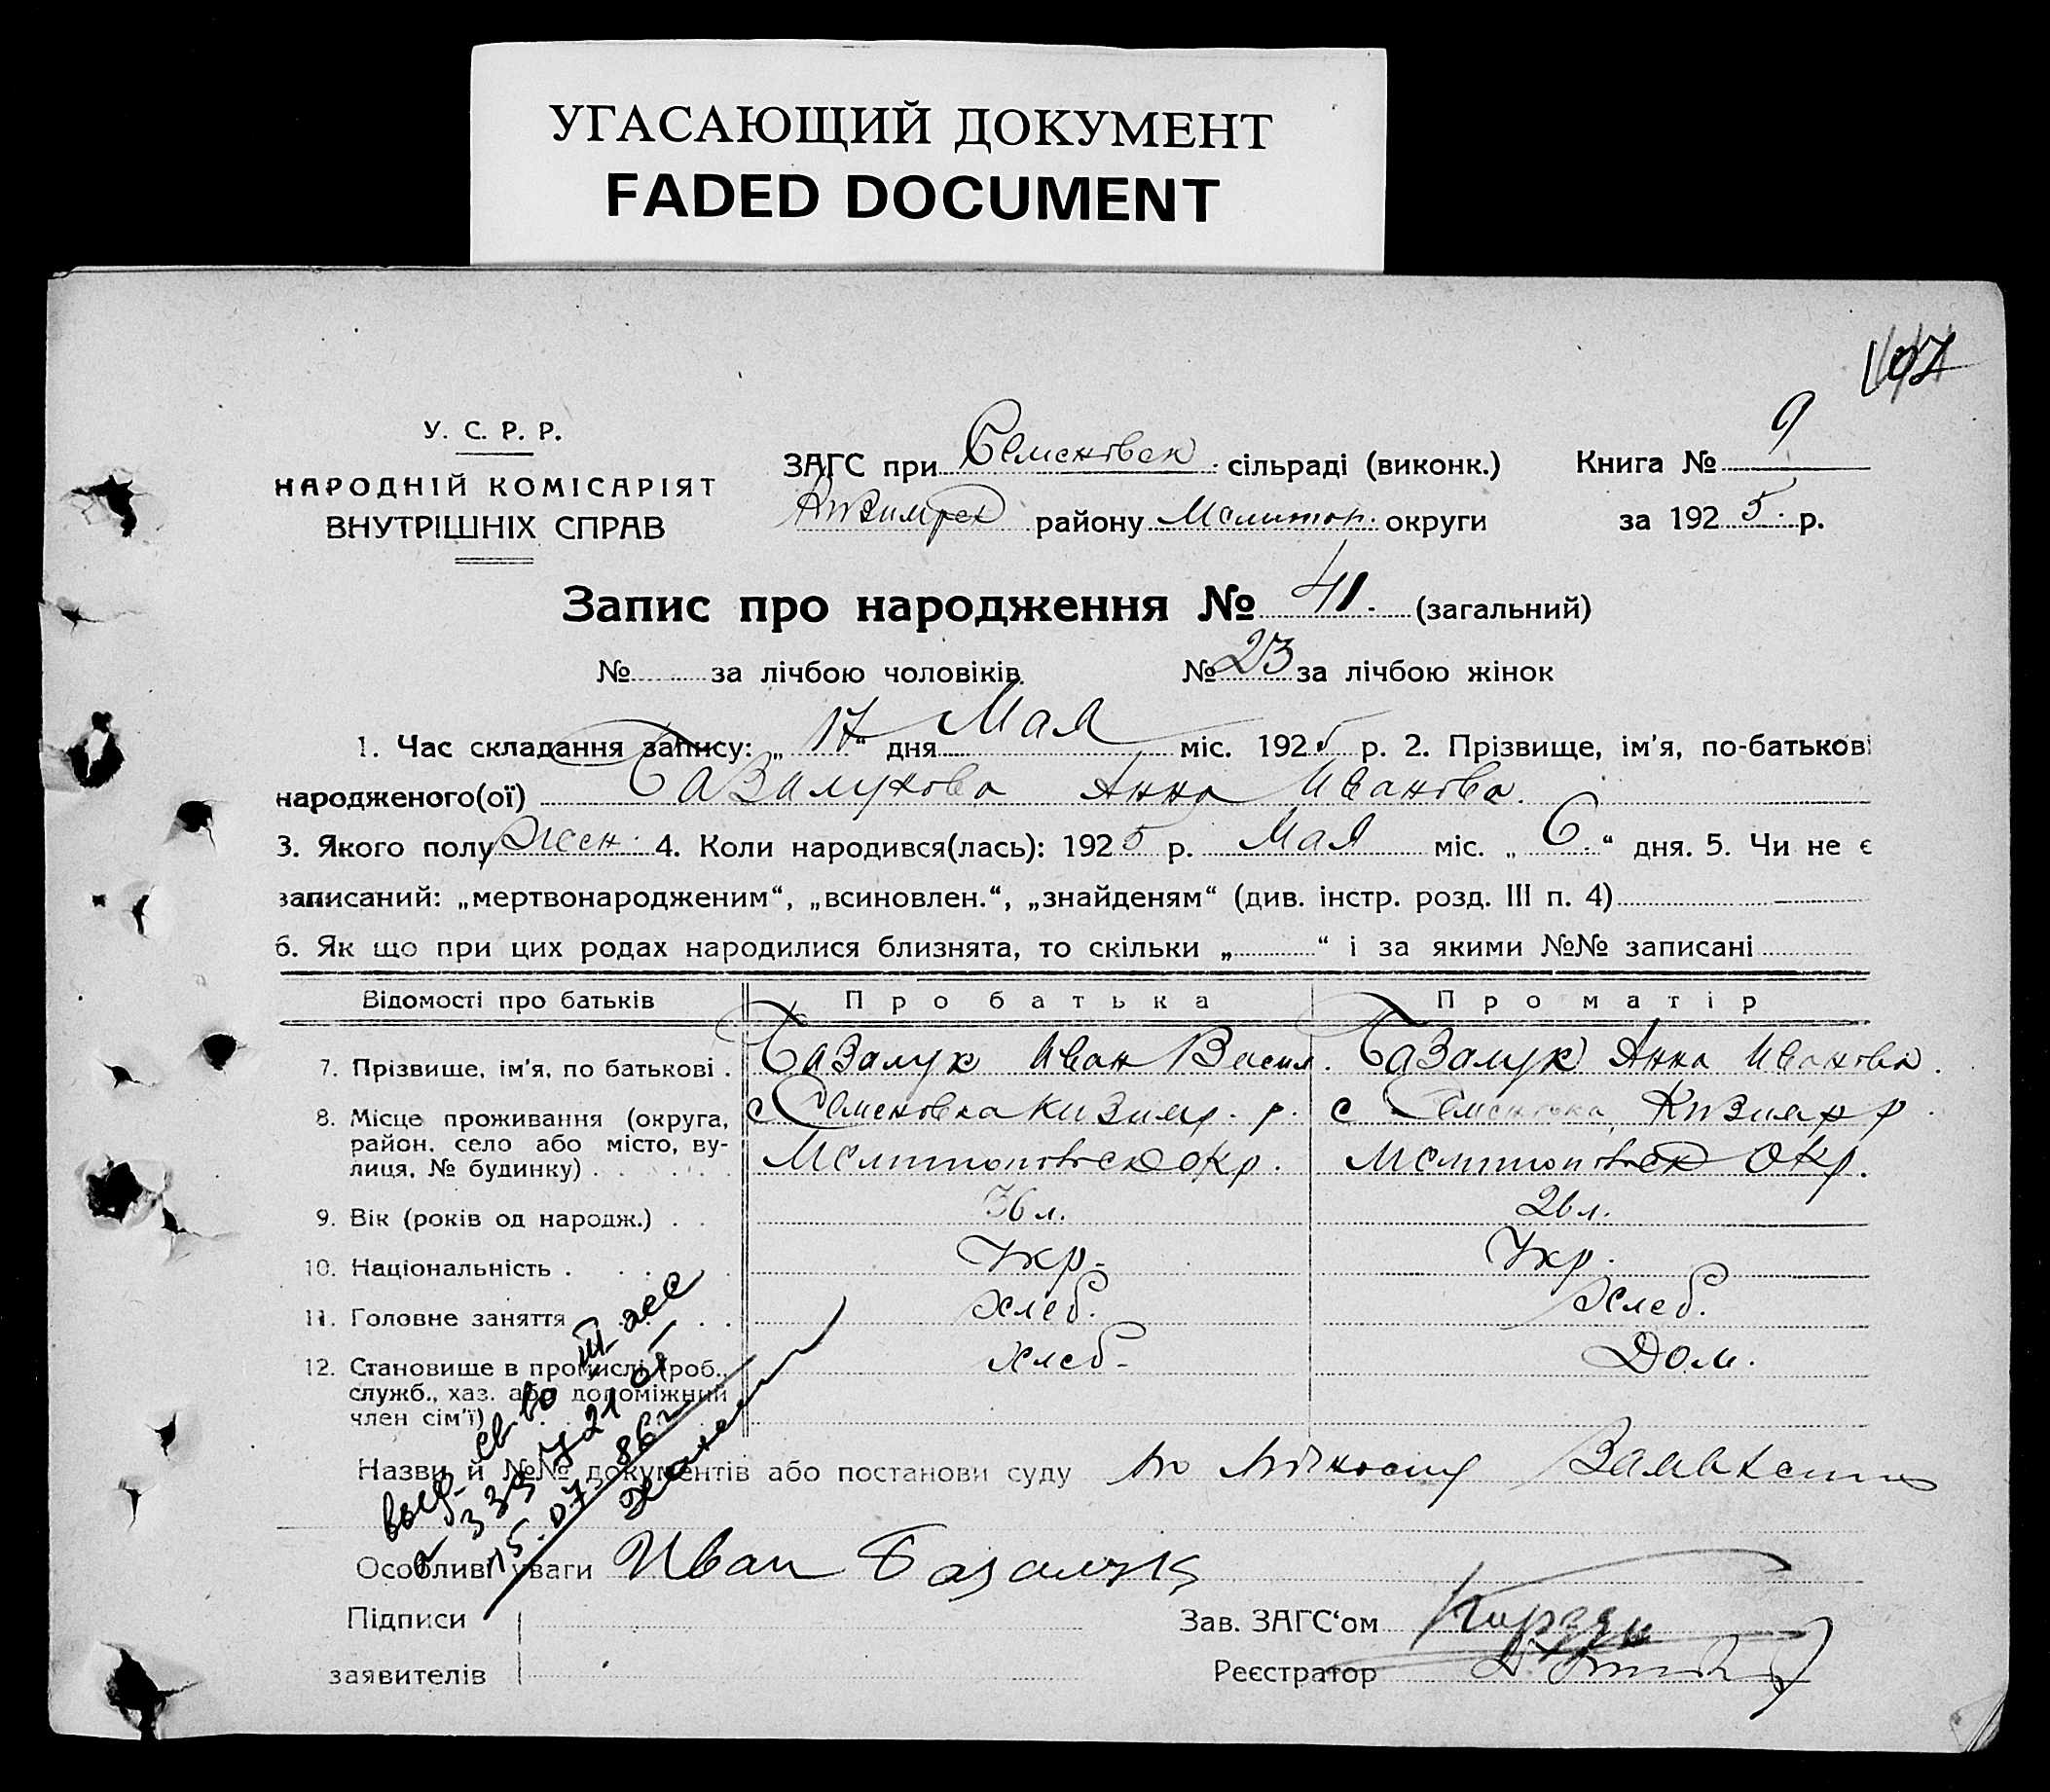 УГАСАЮЩИЙ ДОКУМЕНТ
FADED DOCUMENT
107
У. С. Р. Р.
НАРОДНІЙ КОМІСАРІЯТ
ВНУТРІШНІХ СПРАВ
ЗАГС при Семеновск. сільраді (виконк.) Книга № 9
Кизиярск району Мелитоп. округи за 1925. р.
Запис про народження № 41. (загальний)
№ за лічбою чоловіків № 23 за лічбою жінок
1. Час складання запису: „17“ дня Мая міс. 1925 р. 2. Прізвище, ім'я, по-батькові
народженого(ої) Базалукова Анна Иванова.
3. Якого полу жен. 4. Коли народився(лась): 1925 р. Мая міс. „6.“ дня. 5. Чи не є
записаний: „мертвонародженим“, „всиновлен.“, „знайденям“ (див. інстр. розд. III п. 4)
6. Як що при цих родах народилися близнята, то скільки „ “ і за якими №№ записані
Відомості про батьків Про батька Про матір
7. Прізвище, ім'я, по батькові . Базалук Иван Васил. Базалук Анна Иванова.
8. Місце проживання (округа, район, село або місто, вулиця, № будинку) . с Семеновка Кизияр. р. с Семеновка Кизияр р
Мелитопольск окр. Мелитопольск окр.
9. Вік (років од народж.) . . 36 л. 26 л.
10. Національність . Укр. Укр.
11. Головне заняття Хлеб. Хлеб.
12. Становище в промислі (роб., служб., хаз. або допоміжний член сім'ї) Хлеб. Дом.
Назви й №№ документів або постанови суду по
выд. св-во III
15.07.86
Особливі уваги Иван Базалук
Підписи
заявителів
Зав. ЗАГС'ом
Реєстратор